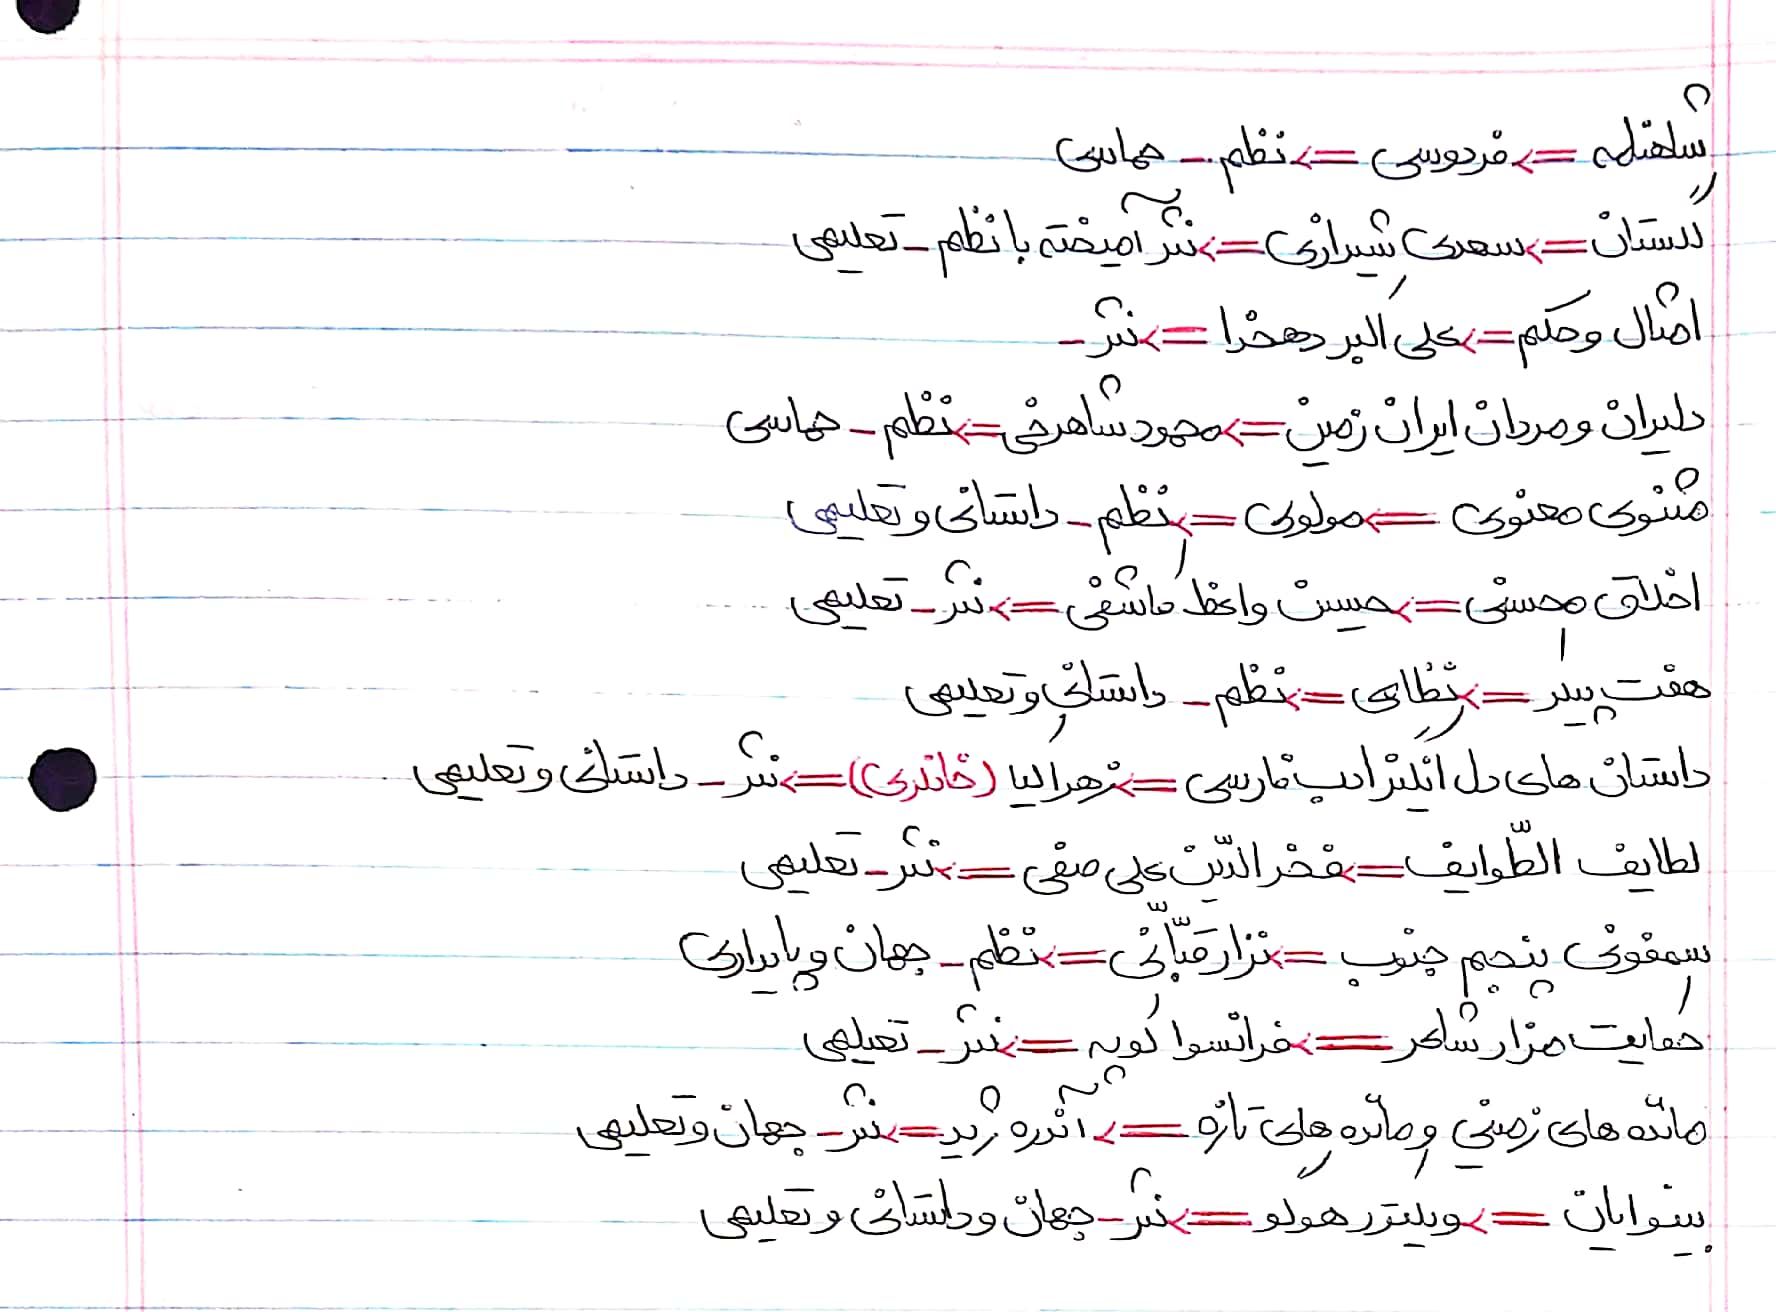 شاهنامه => فردوسی => نظم - حماسی
گلستان => سعدی شیرازی => نثر آمیخته با نظم - تعلیمی
امثال و حکم => علی اکبر دهخدا => نثر -
دلیران و مردان ایران زمین => محمود شاهرخی => نظم - حماسی
مثنوی معنوی => مولوی => نظم - داستانی و تعلیمی
اخلاق محسنی => حسین واعظ کاشفی => نثر - تعلیمی
هفت پیکر => نظامی => نظم - داستانی و تعلیمی
داستان های دل انگیز ادب فارسی => زهرا کیا (خانلری) => نثر - داستانی و تعلیمی
لطایف الطّوایف => فخر الدّین علی صفی => نثر - تعلیمی
سمفونی پنجم جنوب => نزار قبّانی => نظم - جهان و پایداری
حکایت مزار شاعر => فرانسوا کوپه => نثر - تعیلمی
مائده های زمینی و مائده های تازه => آندره ژید => نثر - جهان و تعلیمی
بینوایان => ویکتور هوگو => نثر - جهان و داستانی و تعلیمی